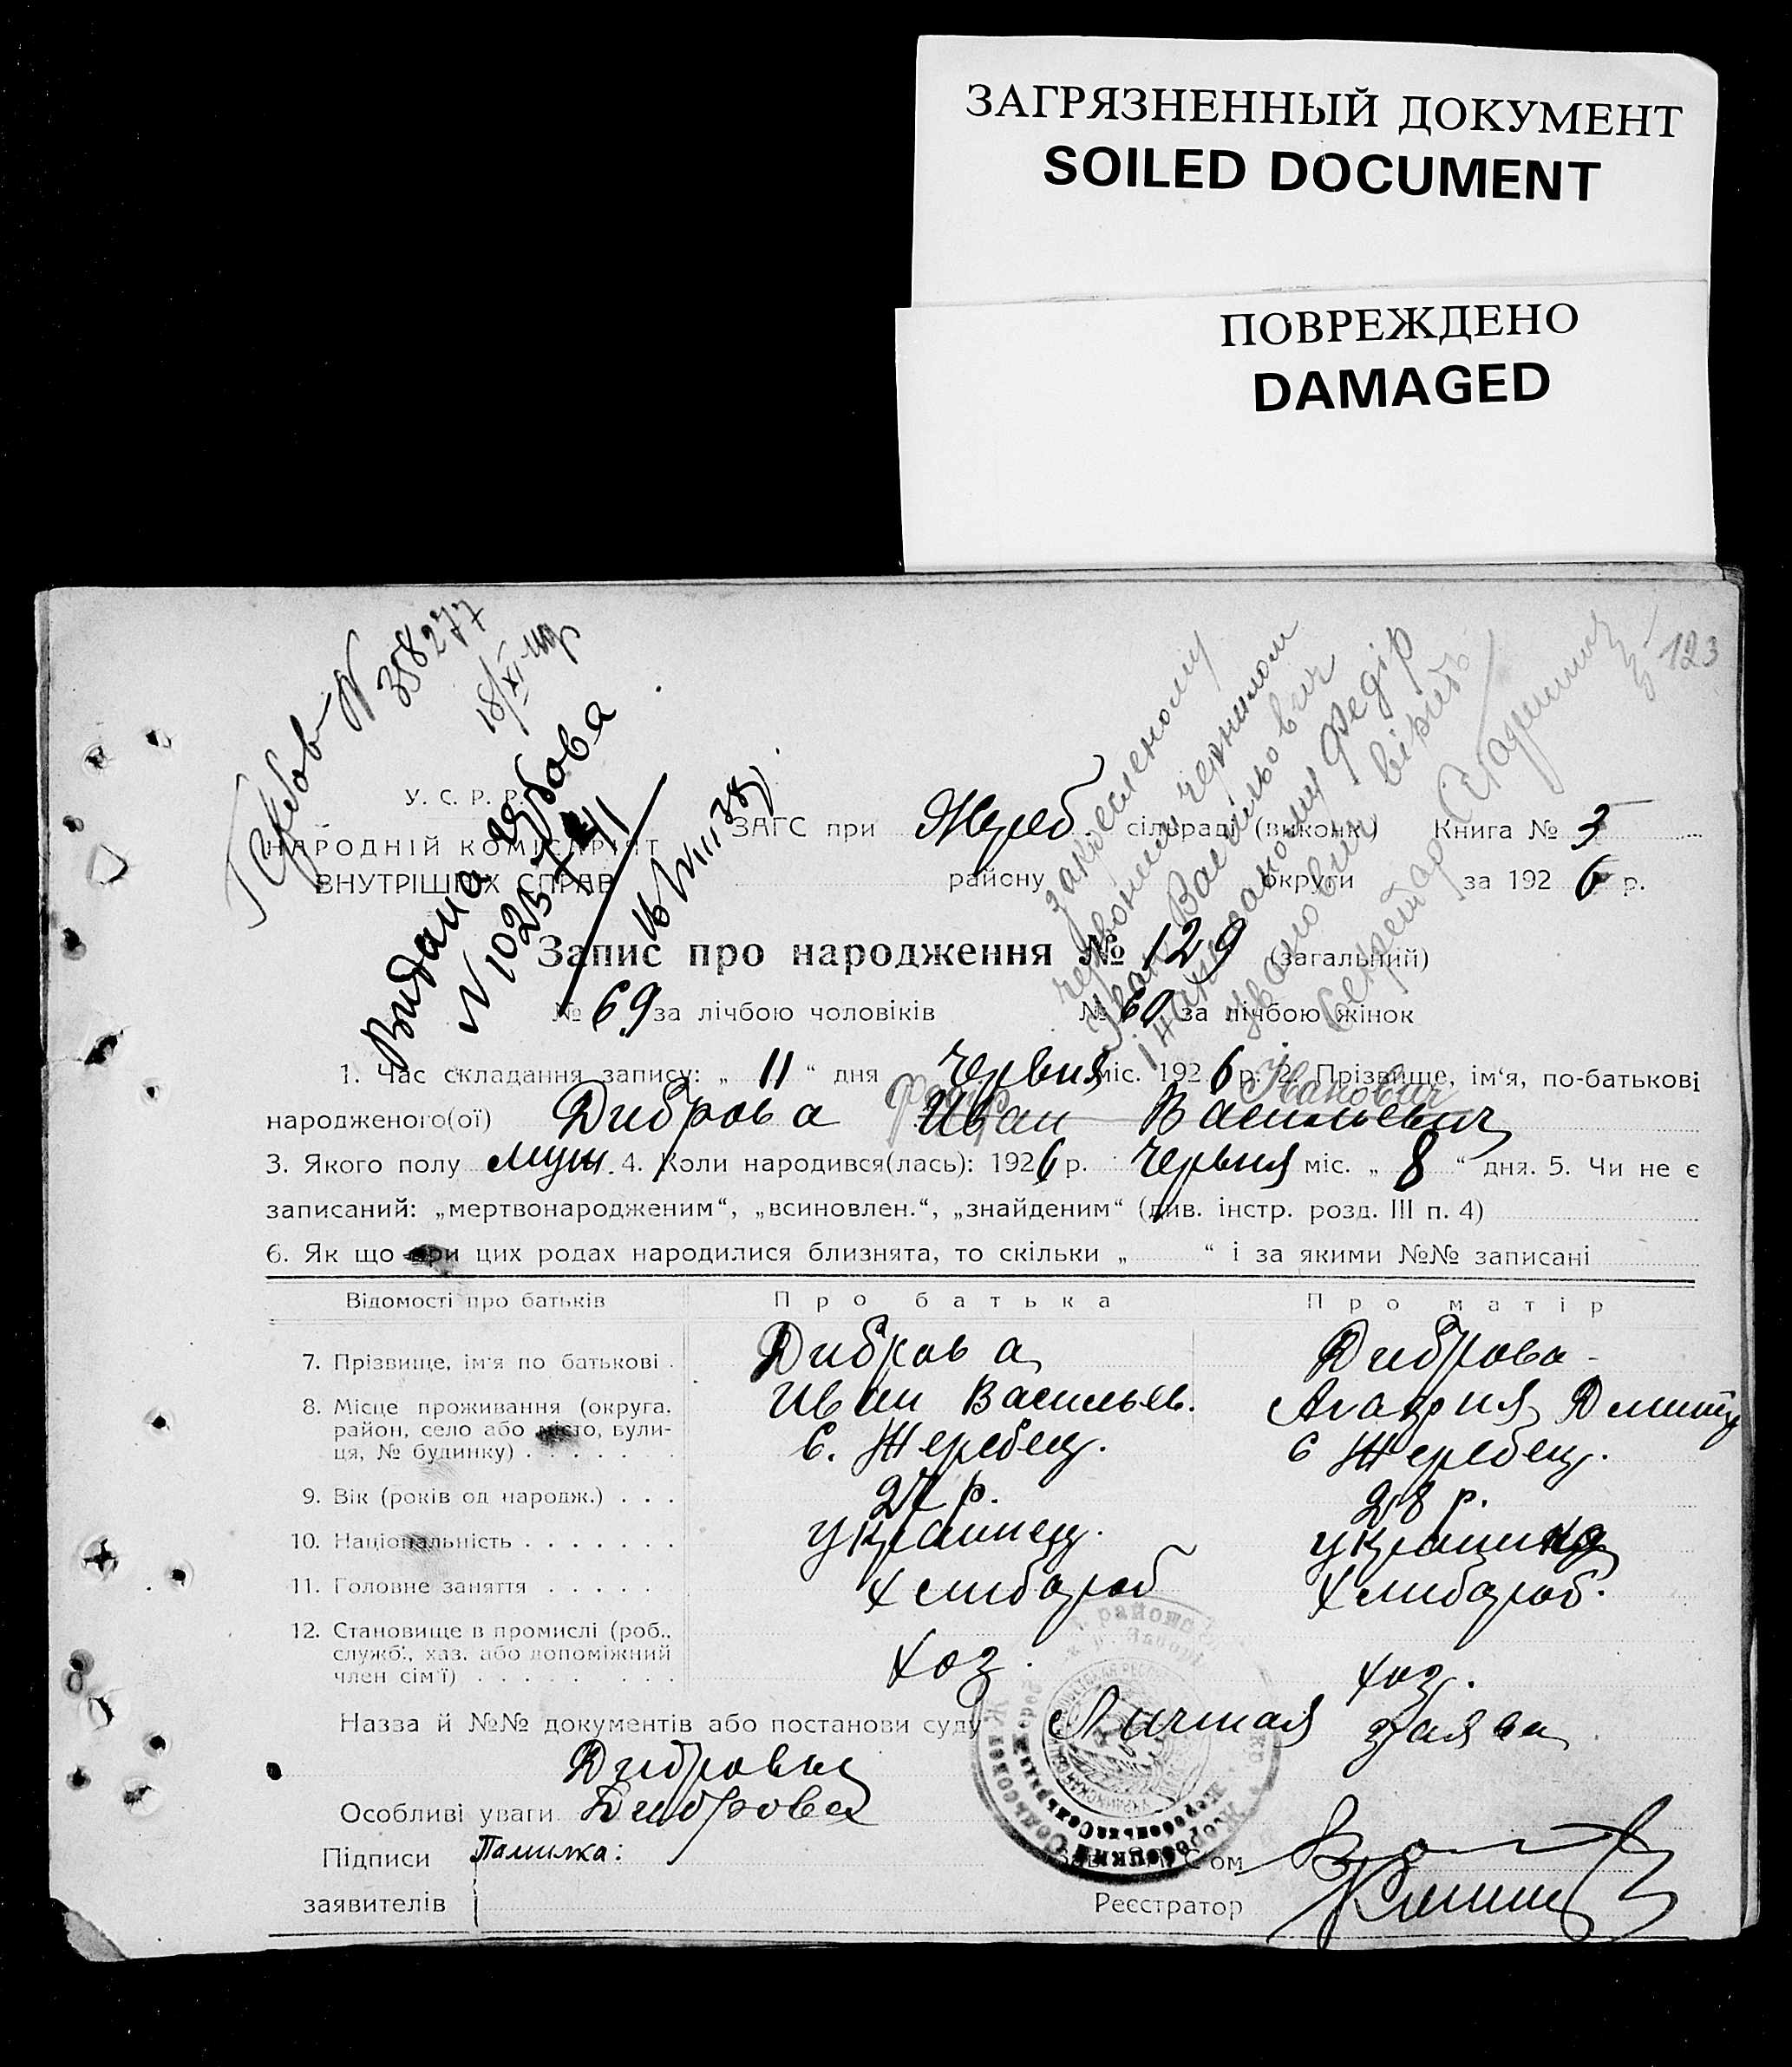 ЗАГРЯЗНЕННЫЙ ДОКУМЕНТ
SOILED DOCUMENT
ПОВРЕЖДЕНО
DAMAGED
123
N 358277
18/XI
Видана
N 102577
закресленому
червоним чернилом
Иван Васильович
Федір
Іванович вірить
Секретар
У. С. Р. Р.
НАРОДНІЙ КОМІСАРІЯТ
ВНУТРІШНІХ СПРАВ
ЗАГС при Жереб. сільраді (виконк.) Книга № 3
району округи за 192 6 р.
Запис про народження № 129 (загальний)
№ 69 за лічбою чоловіків № 60 за лічбою жінок
1. Час складання запису: „ 11 “ дня Червня міс. 192 6 р. 2. Прізвище, ім‘я, по-батькові
Федір Іванович
народженого(ої) Диброва Иван Васильевич
3. Якого полу муж. 4. Коли народився(лась): 1926 р. Червня міс. „ 8 “ дня. 5. Чи не є
записаний: „мертвонародженим“, „всиновлен.“, „знайденим“ (див. інстр. розд. III п. 4)
6. Як що при цих родах народилися близнята, то скільки „ “ і за якими №№ записані
Відомості про батьків Про батька Про матір
7. Прізвище, ім‘я по батькові . Диброва Диброва
Иван Васильев. Агафия Дмитр
8. Місце проживання (округа, район, село або місто, вули-
ця, № будинку) . . . . . . . С. Жеребец. С Жеребец.
9. Вік (років од народж.) . . . 27 р. 28 р.
10. Національність . . . . . . . украинец. украинка
11. Головне заняття . . . . . Хлибороб Хлибороб.
12. Становище в промислі (роб.,
служб., хаз. або допоміжний
член сім‘ї) . . . . . . . . Хоз. хоз.
Назва й №№ документів або постанови суду Личная заява
Дибровы
Особливі уваги Диброва
Підписи Памилка:
заявителів
Реєстратор